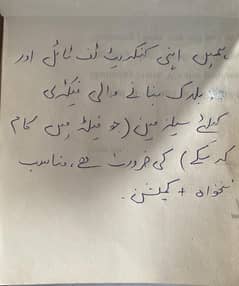 ہمیں اپنی کنکریٹ ٹف ٹائل اور
بلاک بنانے والی فیکٹری
کیلئے سیلز مین (جو فیلڈ میں کام
کر سکے) کی ضرورت ہے، مناسب
تنخواہ + کمیشن.